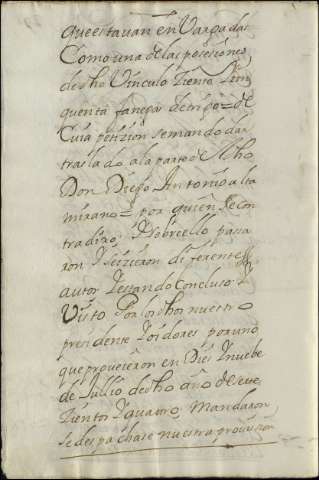 que estavan en Vargadas
Como una de las posesiones
de dho Vinculo Ziento Zin
quenta fanegas de trigo = de
Cuia petizion se mando dar
traslado a la parte del dho
Don Diego Antonio alta
mirano = por quien se con
tradixo, Y sobre ello passa
ron Y se izieron diferentes
autos Y estando Concluso. Y
Visto Por los dhos nuestro
presidente Y oidores por uno
que proveieron en Diez Y nuebe
de Jullio de dho año de sete
Zientos Y quatro, Mandaron
se despachase nuestra provision